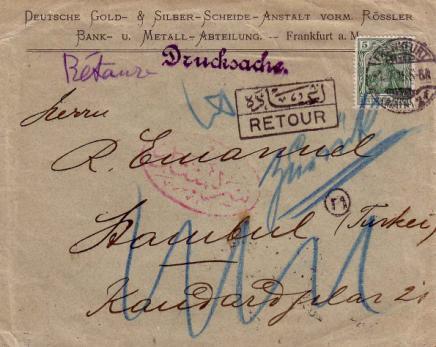 DEUTSCHE GOLD- & SILBER-SCHEIDE-ANSTALT VORM. RÖSSLER
BANK- U. METALL-ABTEILUNG. -- Frankfurt a. M.
Drucksache.
Retour
5
FRANKFURT
RETOUR
Herrn
R. Emanuel
Zurück
٢٩
Stambul (Turkei)
21